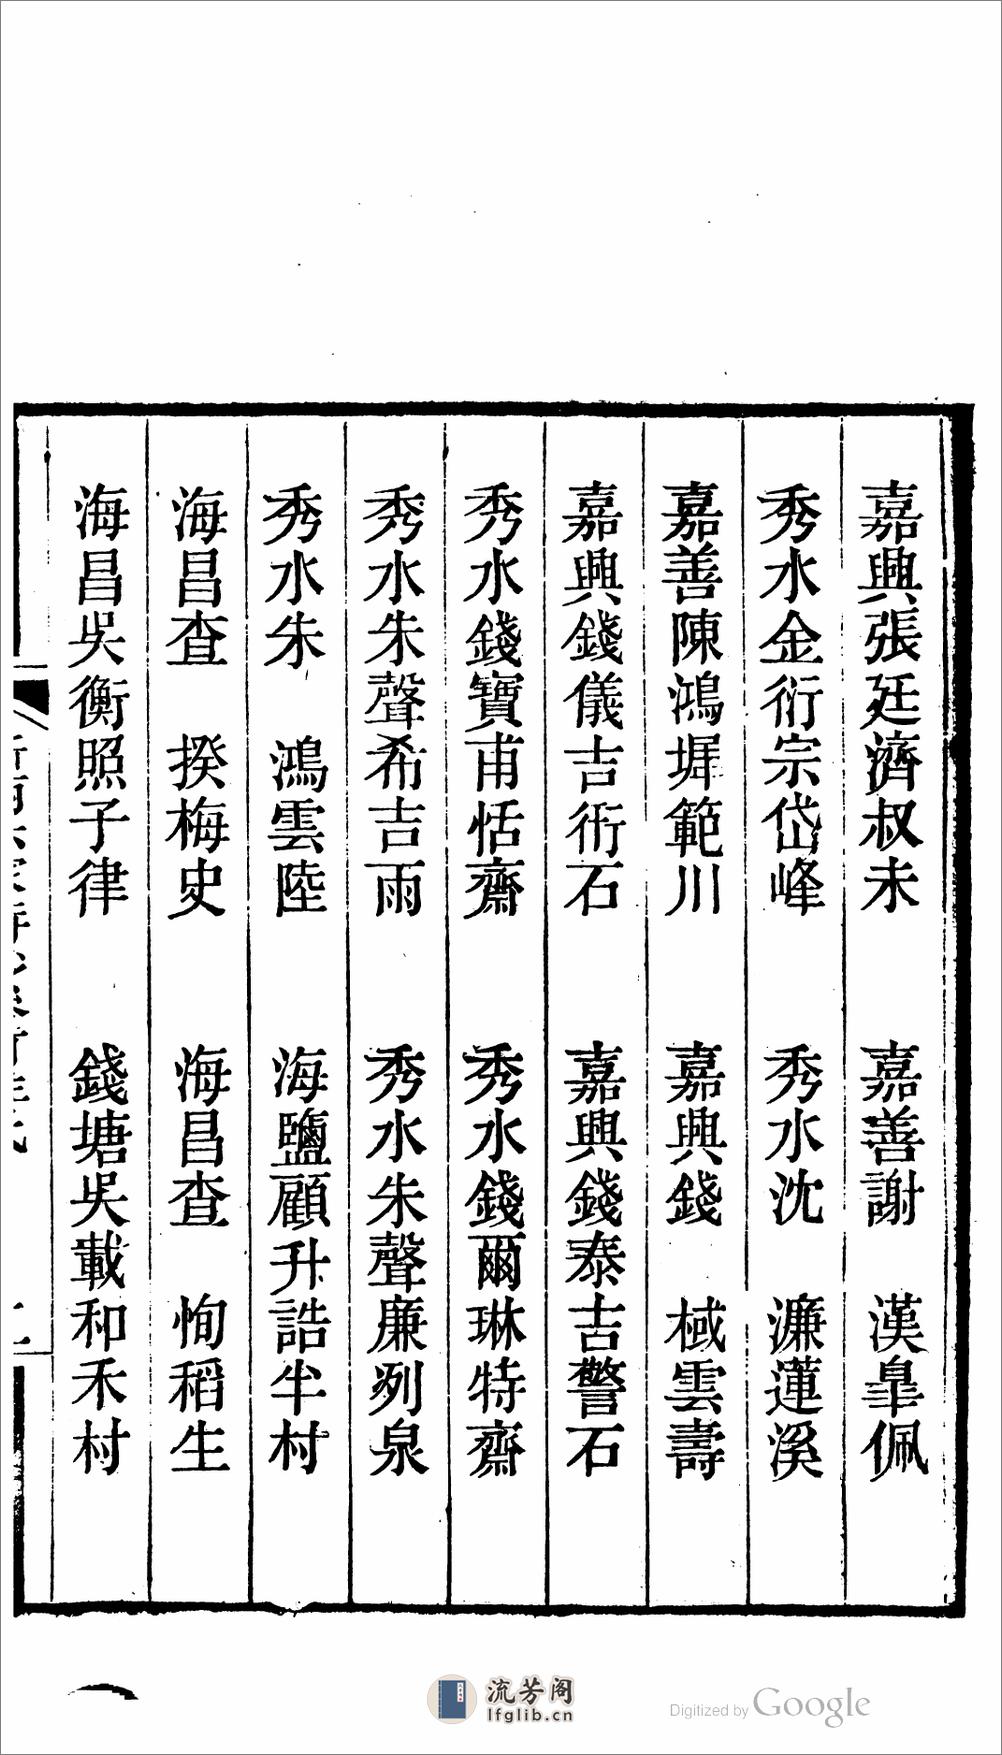 嘉興張廷濟叔未　嘉善謝　漢皐佩
秀水金衍宗岱峰　秀水沈　濂蓮溪
嘉善陳鴻墀範川　嘉興錢　棫雲壽
嘉興錢儀吉衎石　嘉興錢泰吉警石
秀水錢寶甫恬齋　秀水錢爾琳特齋
秀水朱聲希吉雨　秀水朱聲廉冽泉
秀水朱　鴻雲陸　海鹽顧升誥半村
海昌查　揆梅史　海昌查　恂稻生
海昌吳衡照子律　錢塘吳載和禾村
流芳阁
lfglib.cn
Digitized by Google